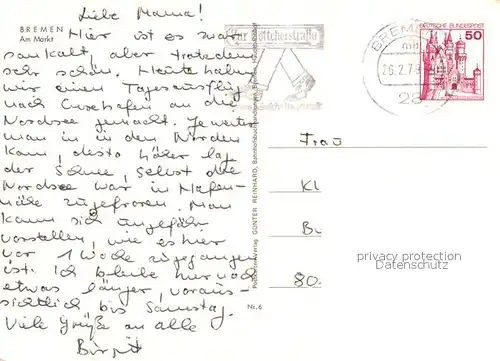 BREMEN
Am Markt
Liebe Mama!
Hier ist es zwar
saukalt, aber trotzdem
sehr schön. Heute haben
wir einen Tagesausflug
nach Cuxhafen an die
Nordsee gemacht. Je weiter
man in in den Norden
kam, desto höher lag
der Schnee, selbst die
Nordsee war in Hafen-
nähe zugefroren. Man
kann sich ungefähr
vorstellen, wie es hier
vor 1 Woche zugegangen
ist. Ich bleibe hier noch
etwas länger, voraus-
sichtlich bis Samstag.
Viele Grüße an alle
Birgit
Zur Böttcherstraße
BREME
26.2.7
28
DEUTSCHE BUNDESPOST
50
Frau
Kl
B.
80.
privacy protection
Datenschutz
GÜNTER REINHARD, Bahnhofsbuchhandlungen, Bremen
Nr. 6